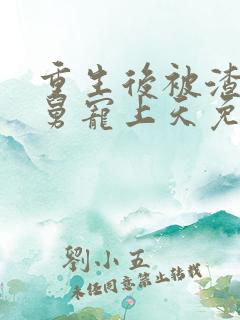 重生後被渣
舅寵上天免
劉小五
未经同意禁止转载